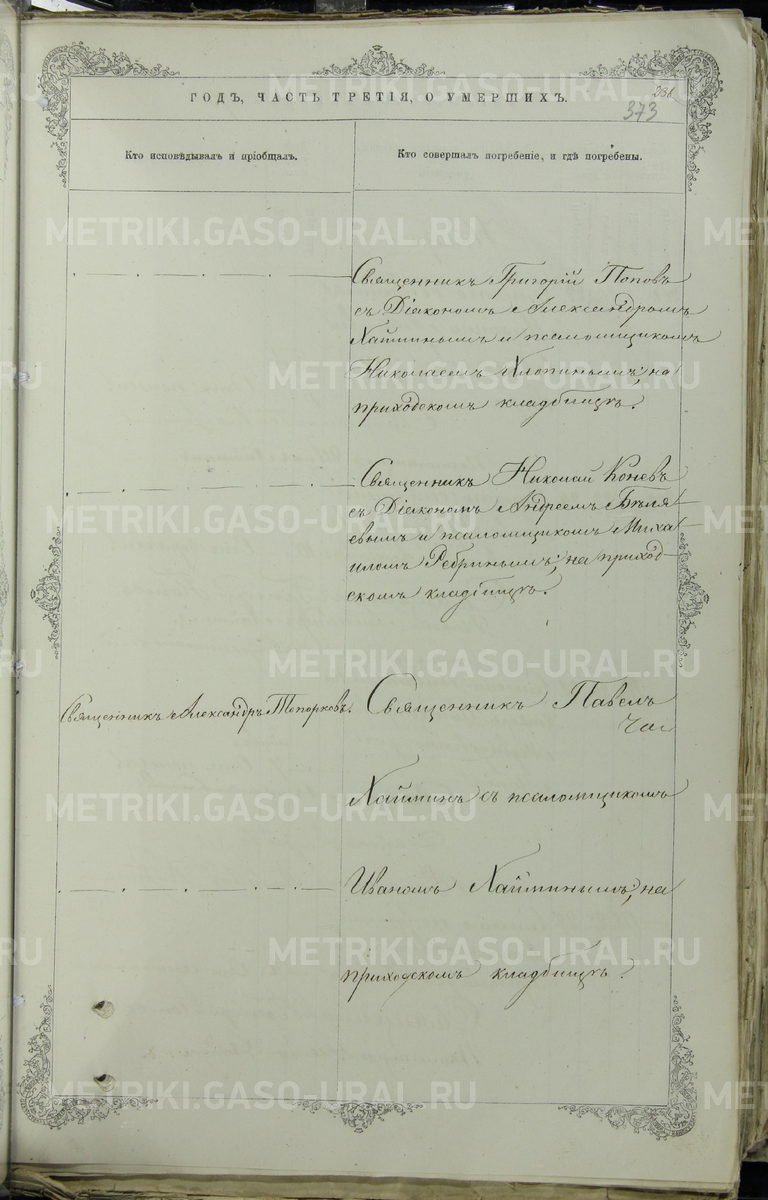 ГОДЪ, ЧАСТЬ ТРЕТІЯ, О УМЕРШИХЪ.
373
Кто исповѣдывалъ и пріобщалъ.
Кто совершалъ погребеніе, и гдѣ погребены.
Священникъ Григорій Поповъ
съ Діакономъ Александромъ
Хайминымъ и псаломщикомъ
Николаемъ Хлопинымъ; на
приходскомъ кладбищѣ.
Священникъ Николай Коневъ
съ Діакономъ Андреемъ Бѣля-
евымъ и псаломщикомъ Миха-
иломъ Ребринымъ; на приход-
скомъ кладбищѣ.
Священникъ Александръ Топорковъ.
Священникъ Павелъ
Хайминъ съ псаломщикомъ
Иваномъ Хайминымъ; на
приходскомъ кладбищѣ.
METRIKI.GASO-URAL.RU